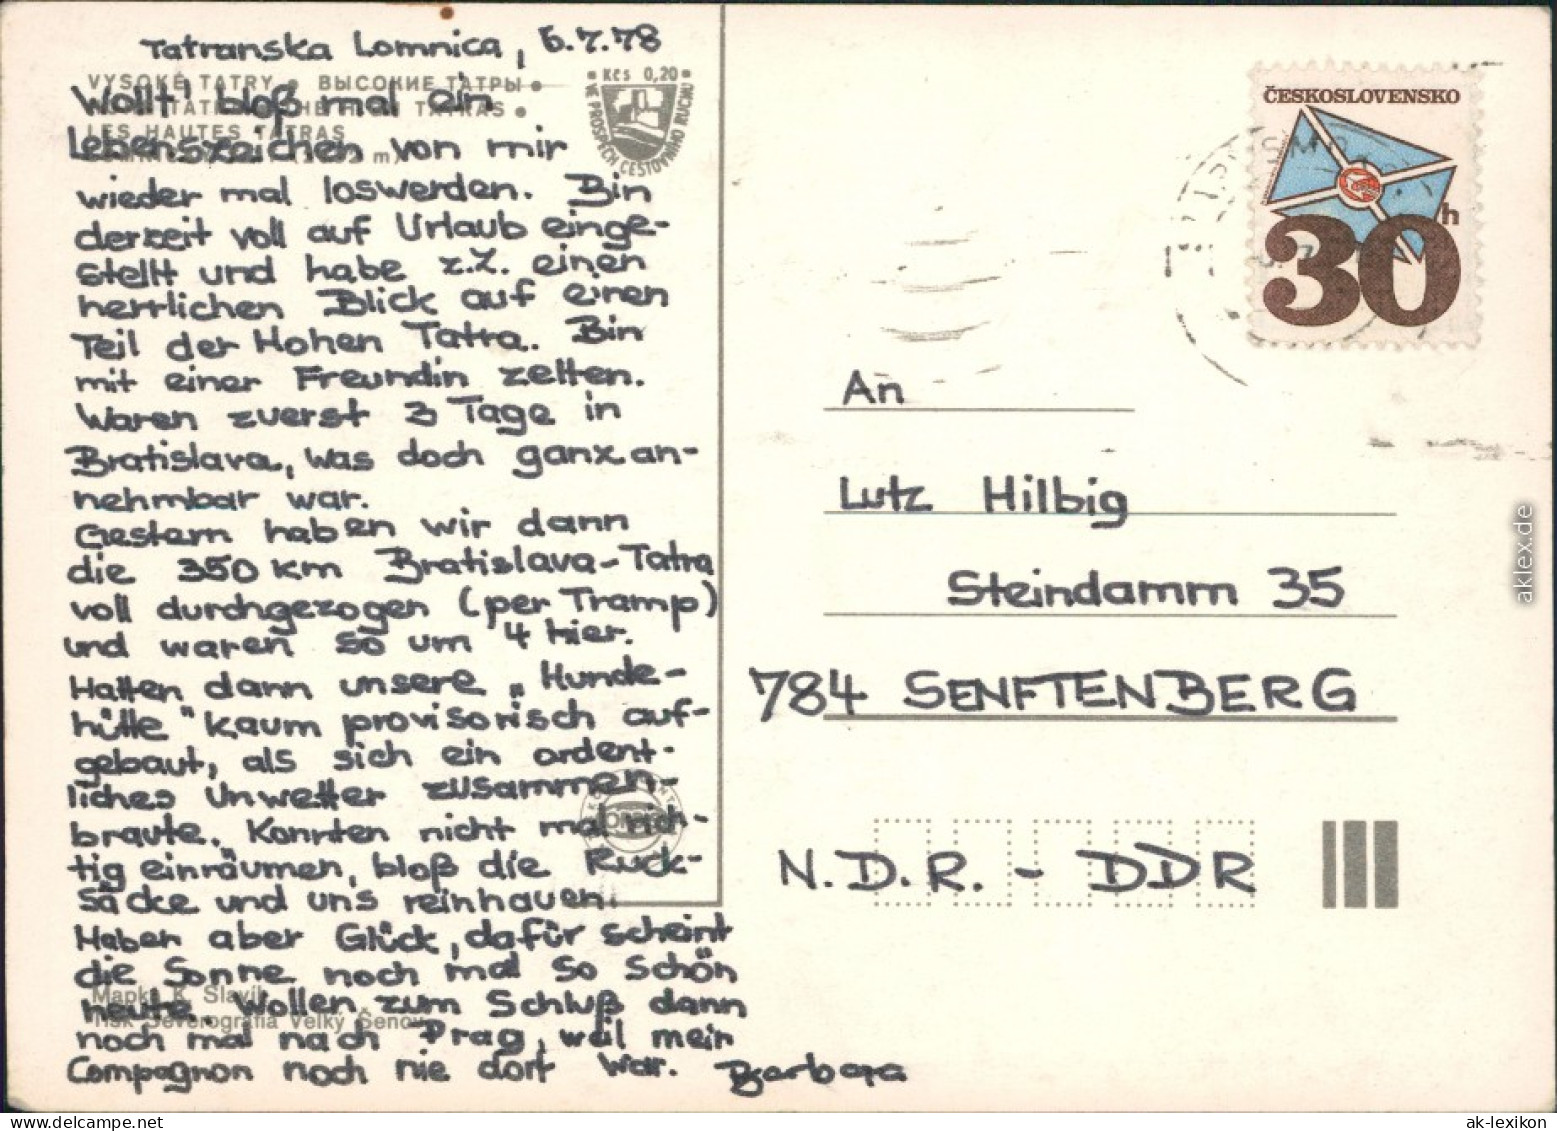 Tatranska Lomnica, 5.7.78
VYSOKÉ TATRY • ВЫСОКИЕ ТАТРЫ •
TATRAS •
LES HAUTES TATRAS
Wollt' bloß mal ein
Lebenszeichen von mir
wieder mal loswerden. Bin
derzeit voll auf Urlaub einge-
stellt und habe z.Z. einen
herrlichen Blick auf einen
Teil der Hohen Tatra. Bin
mit einer Freundin zelten.
Waren zuerst 3 Tage in
Bratislava, was doch ganz an-
nehmbar war.
Gestern haben wir dann
die 350 km Bratislava-Tatra
voll durchgezogen (per Tramp)
und waren so um 4 hier.
Hatten dann unsere „Hunde-
hütte" kaum provisorisch auf-
gebaut, als sich ein ordent-
liches Unwetter zusammen-
braute. Konnten nicht mal rich-
tig einräumen, bloß die Ruck-
säcke und uns reinhauen.
Haben aber Glück, dafür scheint
die Sonne noch mal so schön
heute. Wollen zum Schluß dann
noch mal nach Prag, weil mein
Compagnon noch nie dort war. Barbara
Mapka K. Slavík
Tisk Severografia Velký Šenov
• Kčs 0,20 •
VE PROSPĚCH CESTOVNÍHO RUCHU
ČESKOSLOVENSKO
30h
An
Lutz Hilbig
Steindamm 35
784 SENFTENBERG
N.D.R. - DDR
aklex.de
ak-lexikon